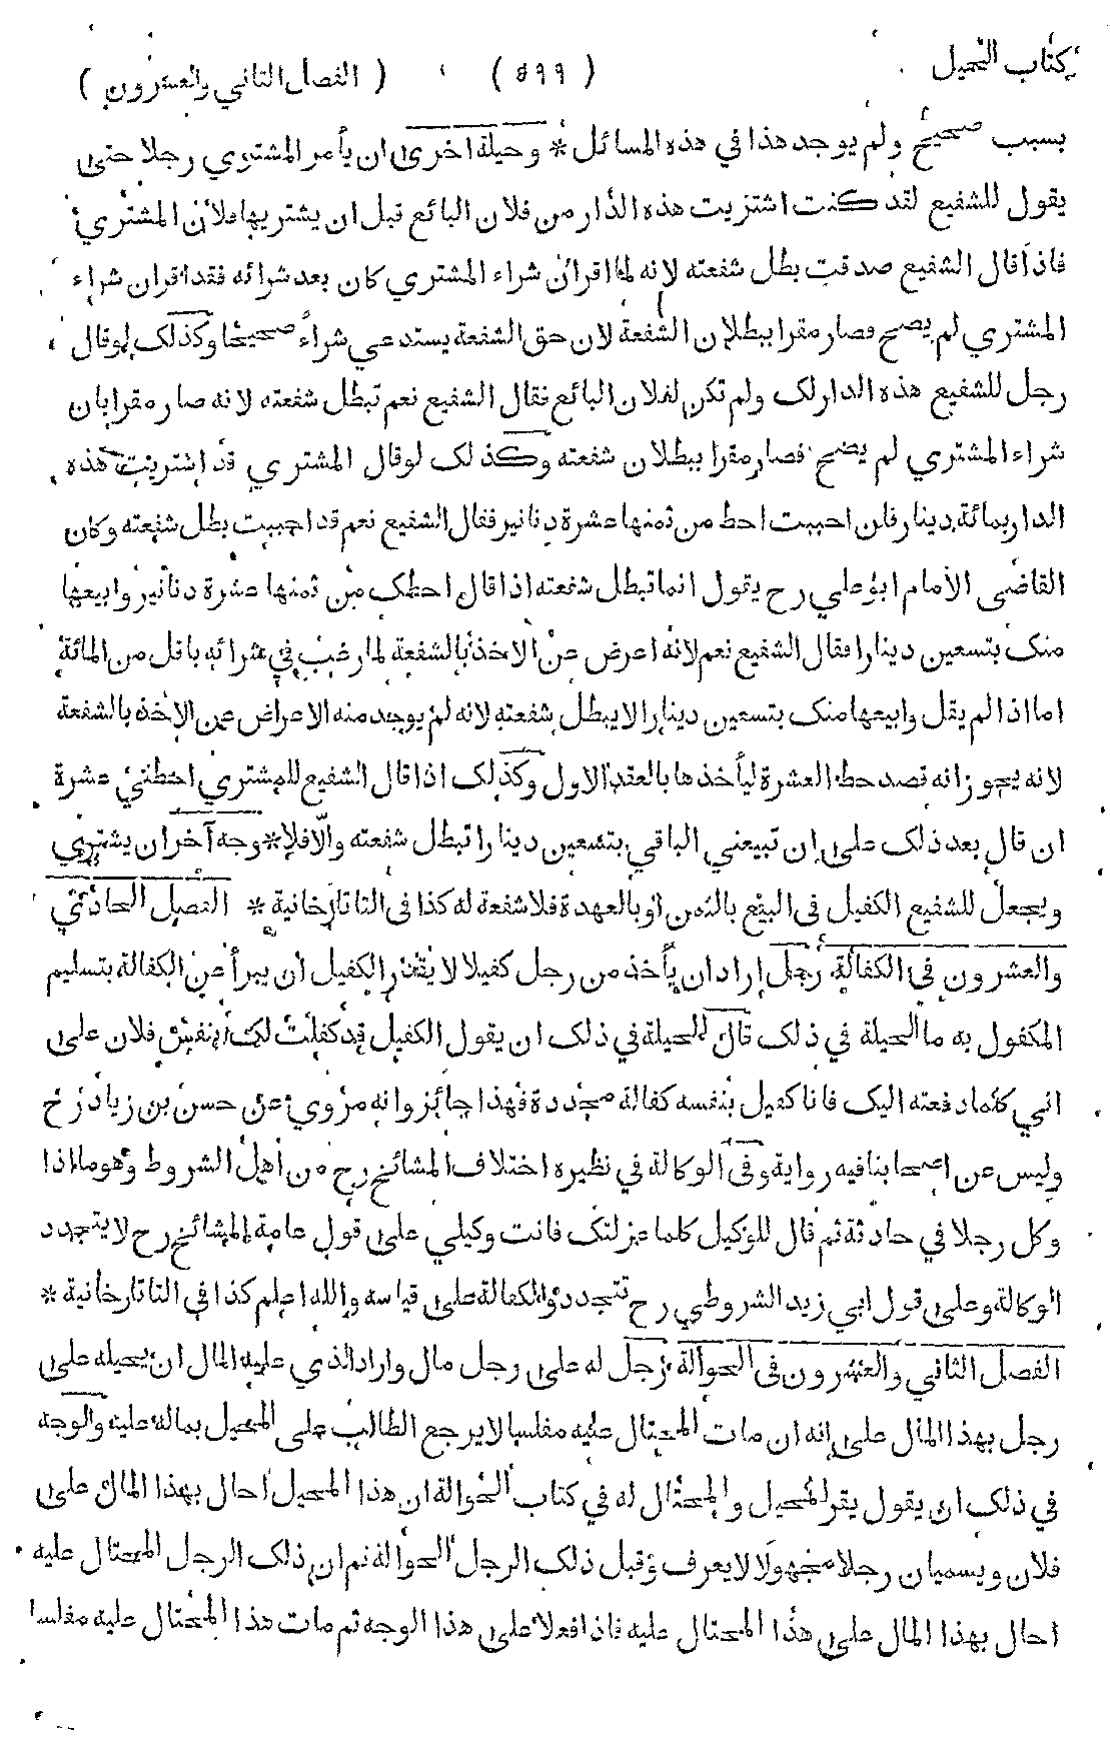 كتاب الحيل ( ٥٩٩ ) ( الفصل الثاني والعشرون )
بسبب صحيح ولم يوجد هذا في هذه المسائل * وحيلة اخرى ان يأمر المشتري رجلا حتى
يقول للشفيع لقد كنت اشتريت هذه الدار من فلان البائع قبل ان يشتريها فلان المشتري
فاذا قال الشفيع صدقت بطل شفعته لانه لما اقران شراء المشتري كان بعد شرائه فقد اقران شراء
المشتري لم يصح فصار مقرا ببطلان الشفعة لان حق الشفعة يستدعي شراءً صحيحا وكذلك لوقال
رجل للشفيع هذه الدار لك ولم تكن لفلان البائع فقال الشفيع نعم تبطل شفعته لانه صار مقرا بان
شراء المشتري لم يصح فصار مقرا ببطلان شفعته وكذلك لوقال المشتري قد اشتريت هذه
الدار بمائة دينار فان احببت احط من ثمنها عشرة دنانير فقال الشفيع نعم قد احببت بطل شفعته وكان
القاضى الامام ابو علي رح يقول انما تبطل شفعته اذا قال احطك من ثمنها عشرة دنانير وابيعها
منك بتسعين دينارا فقال الشفيع نعم لانه اعرض عن الاخذ بالشفعة لما رغب في شرائه باقل من المائة
اما اذا لم يقل وابيعها منك بتسعين دينارا لا يبطل شفعته لانه لم يوجد منه الاعراض عن الاخذ بالشفعة
لانه يجوز انه قصد حط العشرة ليأخذها بالعقد الاول وكذلك اذا قال الشفيع للمشتري احطني عشرة
ان قال بعد ذلك على ان تبيعني الباقي بتسعين دينارا تبطل شفعته والّا فلا * وجه آخر ان يشتري
ويجعل للشفيع الكفيل فى البيع بالثمن او بالعهدة فلا شفعة له كذا فى التاتارخانية * الفصل الحادي
والعشرون في الكفالة رجل اراد ان يأخذ من رجل كفيلا لا يقدر الكفيل ان يبرأ عن الكفالة بتسليم
المكفول به ما الحيلة في ذلك قال الحيلة في ذلك ان يقول الكفيل قد كفلت لك بنفس فلان على
اني كلما دفعته اليك فانا كفيل بنفسه كفالة مجددة فهذا جائز وانه مروي عن حسن بن زياد رح
وليس عن اصحابنا فيه رواية وفى الوكالة في نظيره اختلاف المشائخ رح من اهل الشروط وهو ما اذا
وكل رجلا في حادثة ثم قال للوكيل كلما عزلتك فانت وكيلي على قول عامة المشائخ رح لا يتجدد
الوكالة وعلى قول ابي زيد الشروطي رح تتجدد والكفالة على قياسه والله اعلم كذا في التاتارخانية *
الفصل الثاني والعشرون فى الحوالة رجل له على رجل مال واراد الذي عليه المال ان يحيله على
رجل بهذا المال على انه ان مات المحتال عليه مفلسا لا يرجع الطالب على المحيل بماله عليه والوجه
في ذلك ان يقول يقر المحيل والمحتال له في كتاب الحوالة ان هذا المحيل احال بهذا المال على
فلان ويسميان رجلا مجهولا لا يعرف وقبل ذلك الرجل الحوالة ثم ان ذلك الرجل المحتال عليه
احال بهذا المال على هذا المحتال عليه فاذا فعلا على هذا الوجه ثم مات هذا المحتال عليه مفلسا